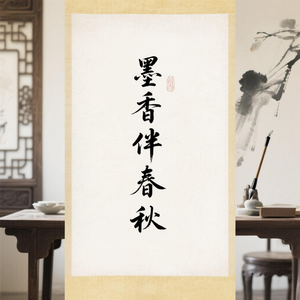 墨香伴春秋